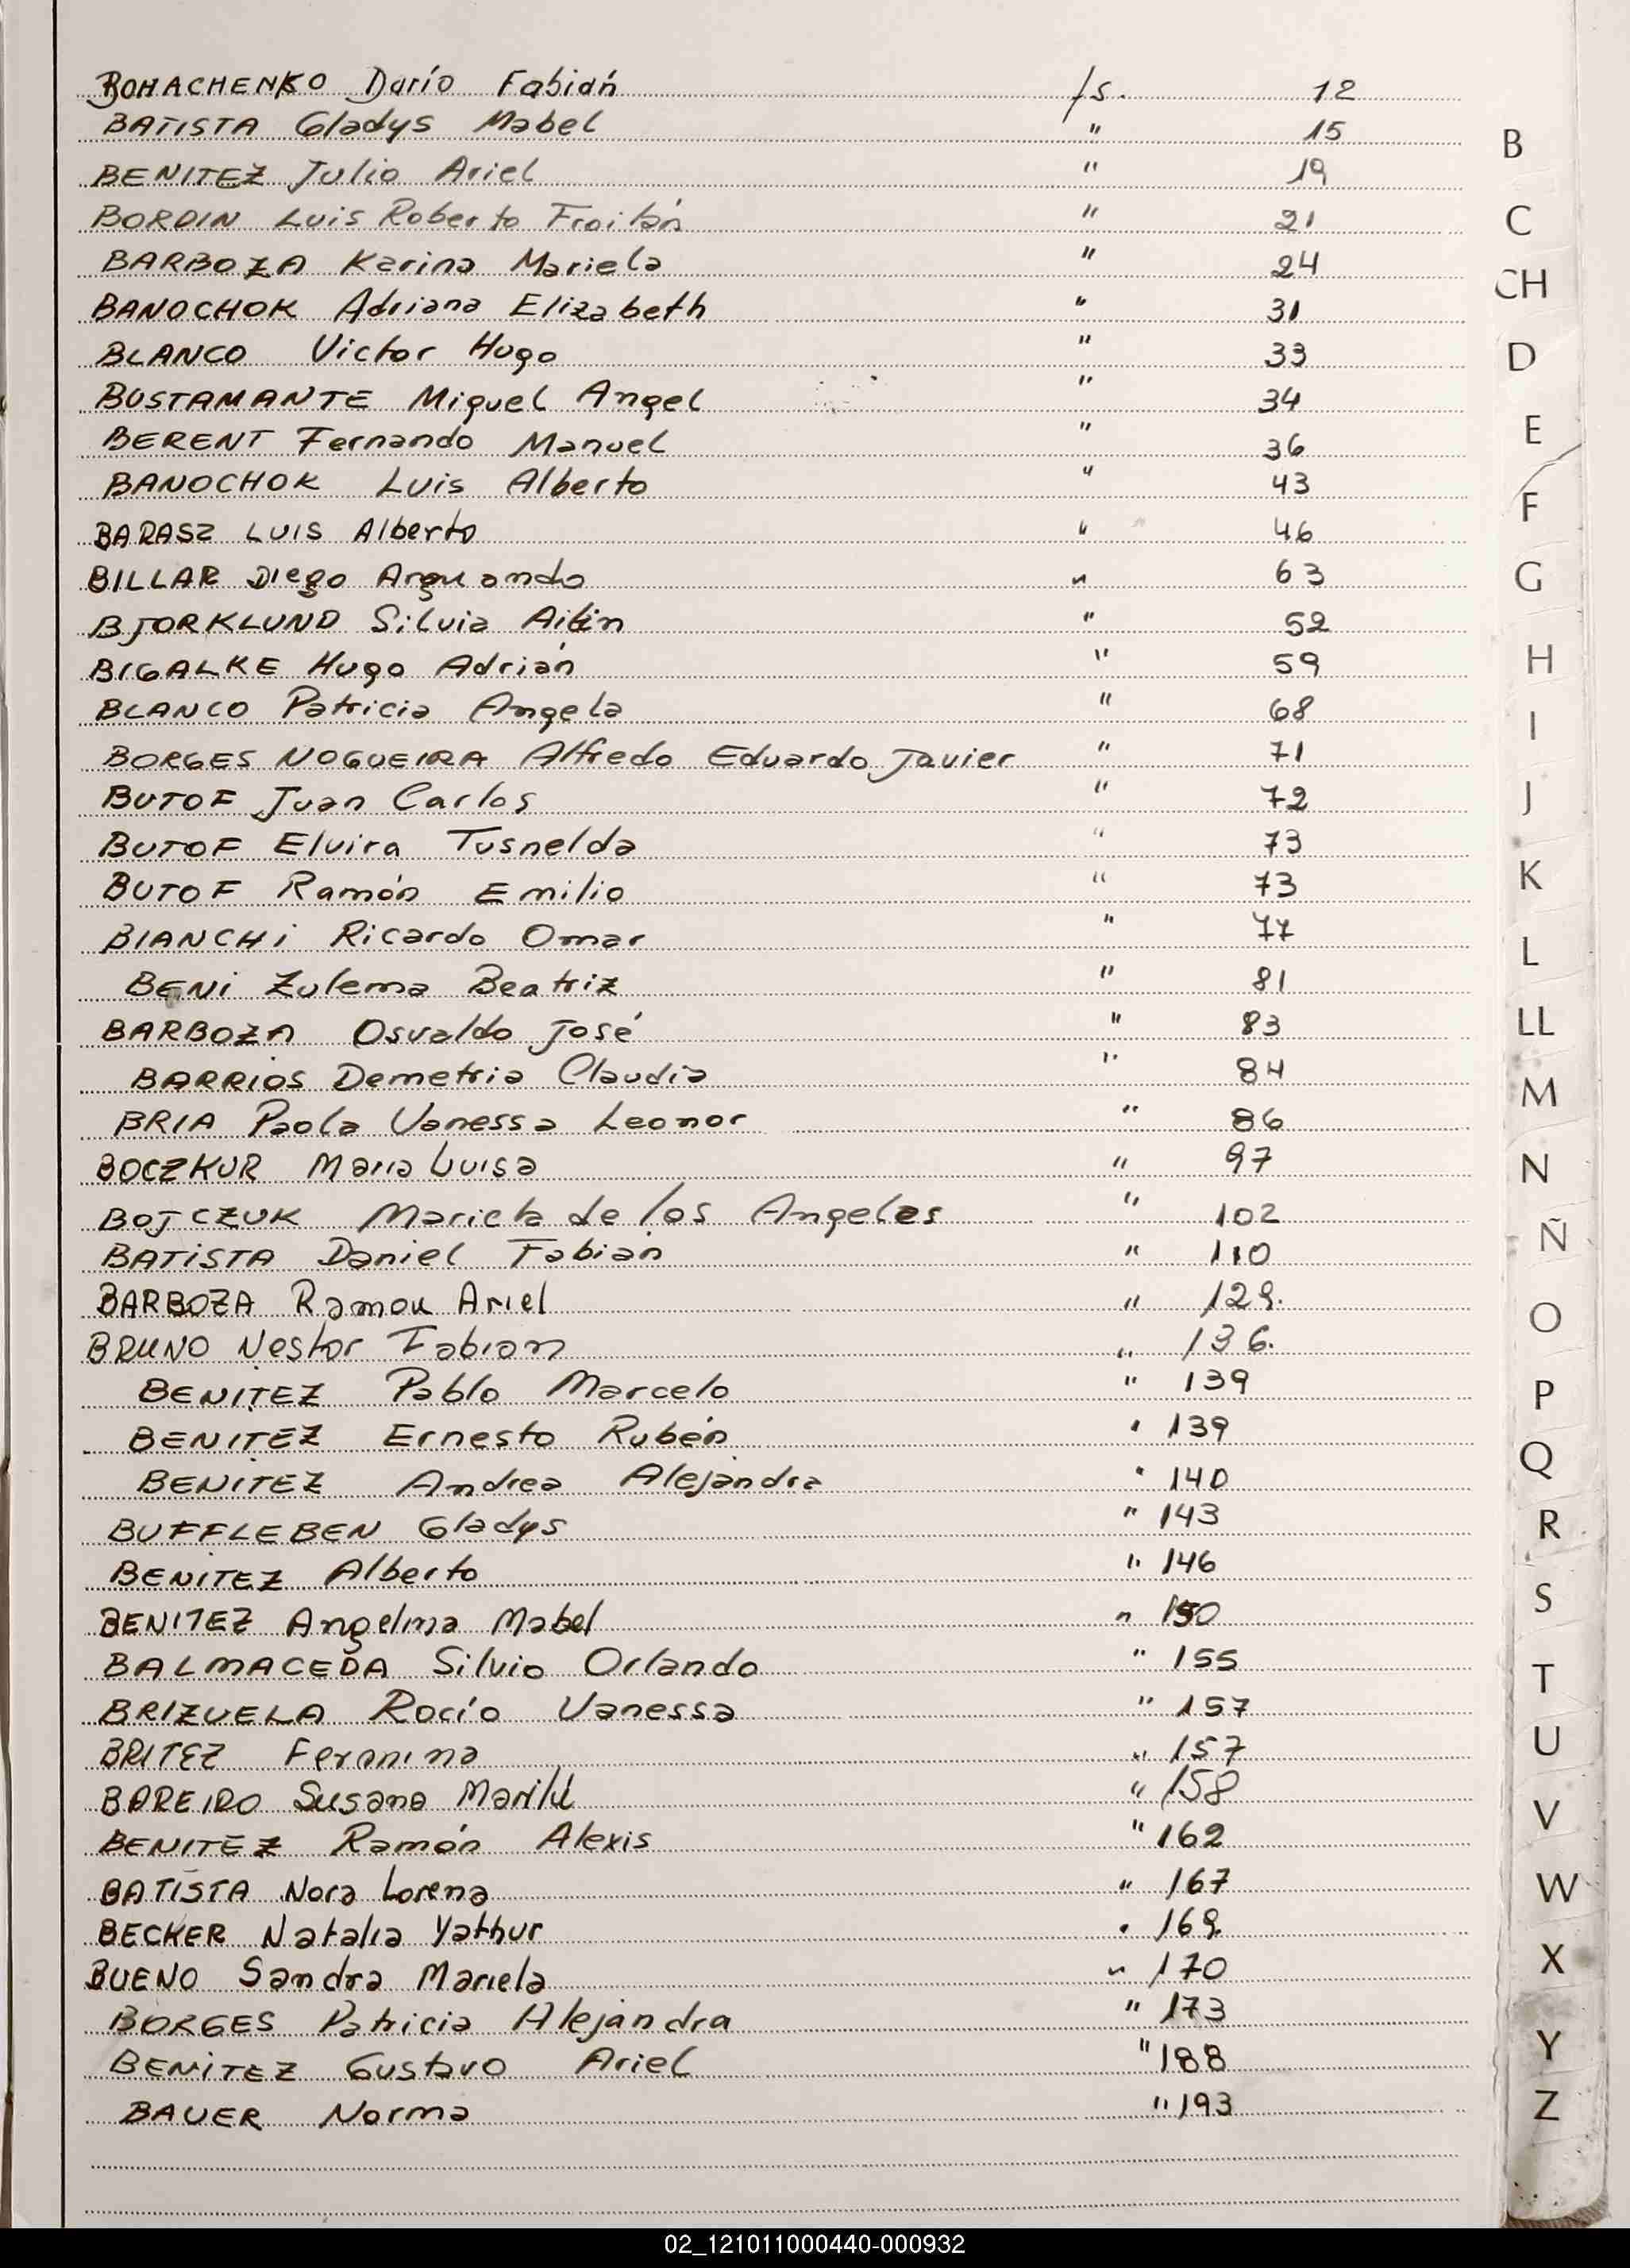 BOHACHENKO Darío Fabián fs. 12
BATISTA Gladys Mabel " 15
BENITEZ Julio Ariel " 19
BORDIN Luis Roberto Froilán " 21
BARBOZA Karina Mariela " 24
BANOCHOK Adriana Elizabeth " 31
BLANCO Victor Hugo " 33
BUSTAMANTE Miguel Angel " 34
BERENT Fernando Manuel " 36
BANOCHOK Luis Alberto " 43
BARASZ LUIS Alberto " 46
BILLAR Diego " 63
BJORKLUND Silvia " 52
BIGALKE Hugo Adrián " 59
BLANCO Patricia Angela " 68
BORGES NOGUEIRA Alfredo Eduardo Javier " 71
BUTOF Juan Carlos " 72
BUTOF Elvira Tusnelda " 73
BUTOF Ramón Emilio " 73
BIANCHi Ricardo Omar " 77
BENi Zulema Beatriz " 81
BARBOZA Osvaldo José " 83
BARRIOS Demetria Claudia " 84
BRIA Paola Vanessa Leonor " 86
BOCZKUR Maria Luisa " 97
BOJCZUK Mariela de los Angeles " 102
BATISTA Daniel Fabián " 110
BARBOZA Ramon Ariel " 129.
BRUNO Nestor Fabian " 136.
BENITEZ Pablo Marcelo " 139
BENITEZ Ernesto Rubén " 139
BENITEZ Andrea Alejandra " 140
BUFFLEBEN Gladys " 143
BENITEZ Alberto " 146
BENITEZ Angelina Mabel " 150
BALMACEDA Silvio Orlando " 155
BRIZUELA Rocío Vanessa " 157
BRITEZ " 157
BAREIRO Susana Marilú " 158
BENITEZ Ramón Alexis " 162
BATISTA Nora Lorena " 167
BECKER Natalia Yathur " 169.
BUENO Sandra Mariela " 170
BORGES Patricia Alejandra " 173
BENITEZ Gustavo Ariel " 188
BAUER Norma " 193
B
C
CH
D
E
F
G
H
I
J
K
L
LL
M
N
Ñ
O
P
Q
R
S
T
U
V
W
X
Y
Z
02_121011000440-000932